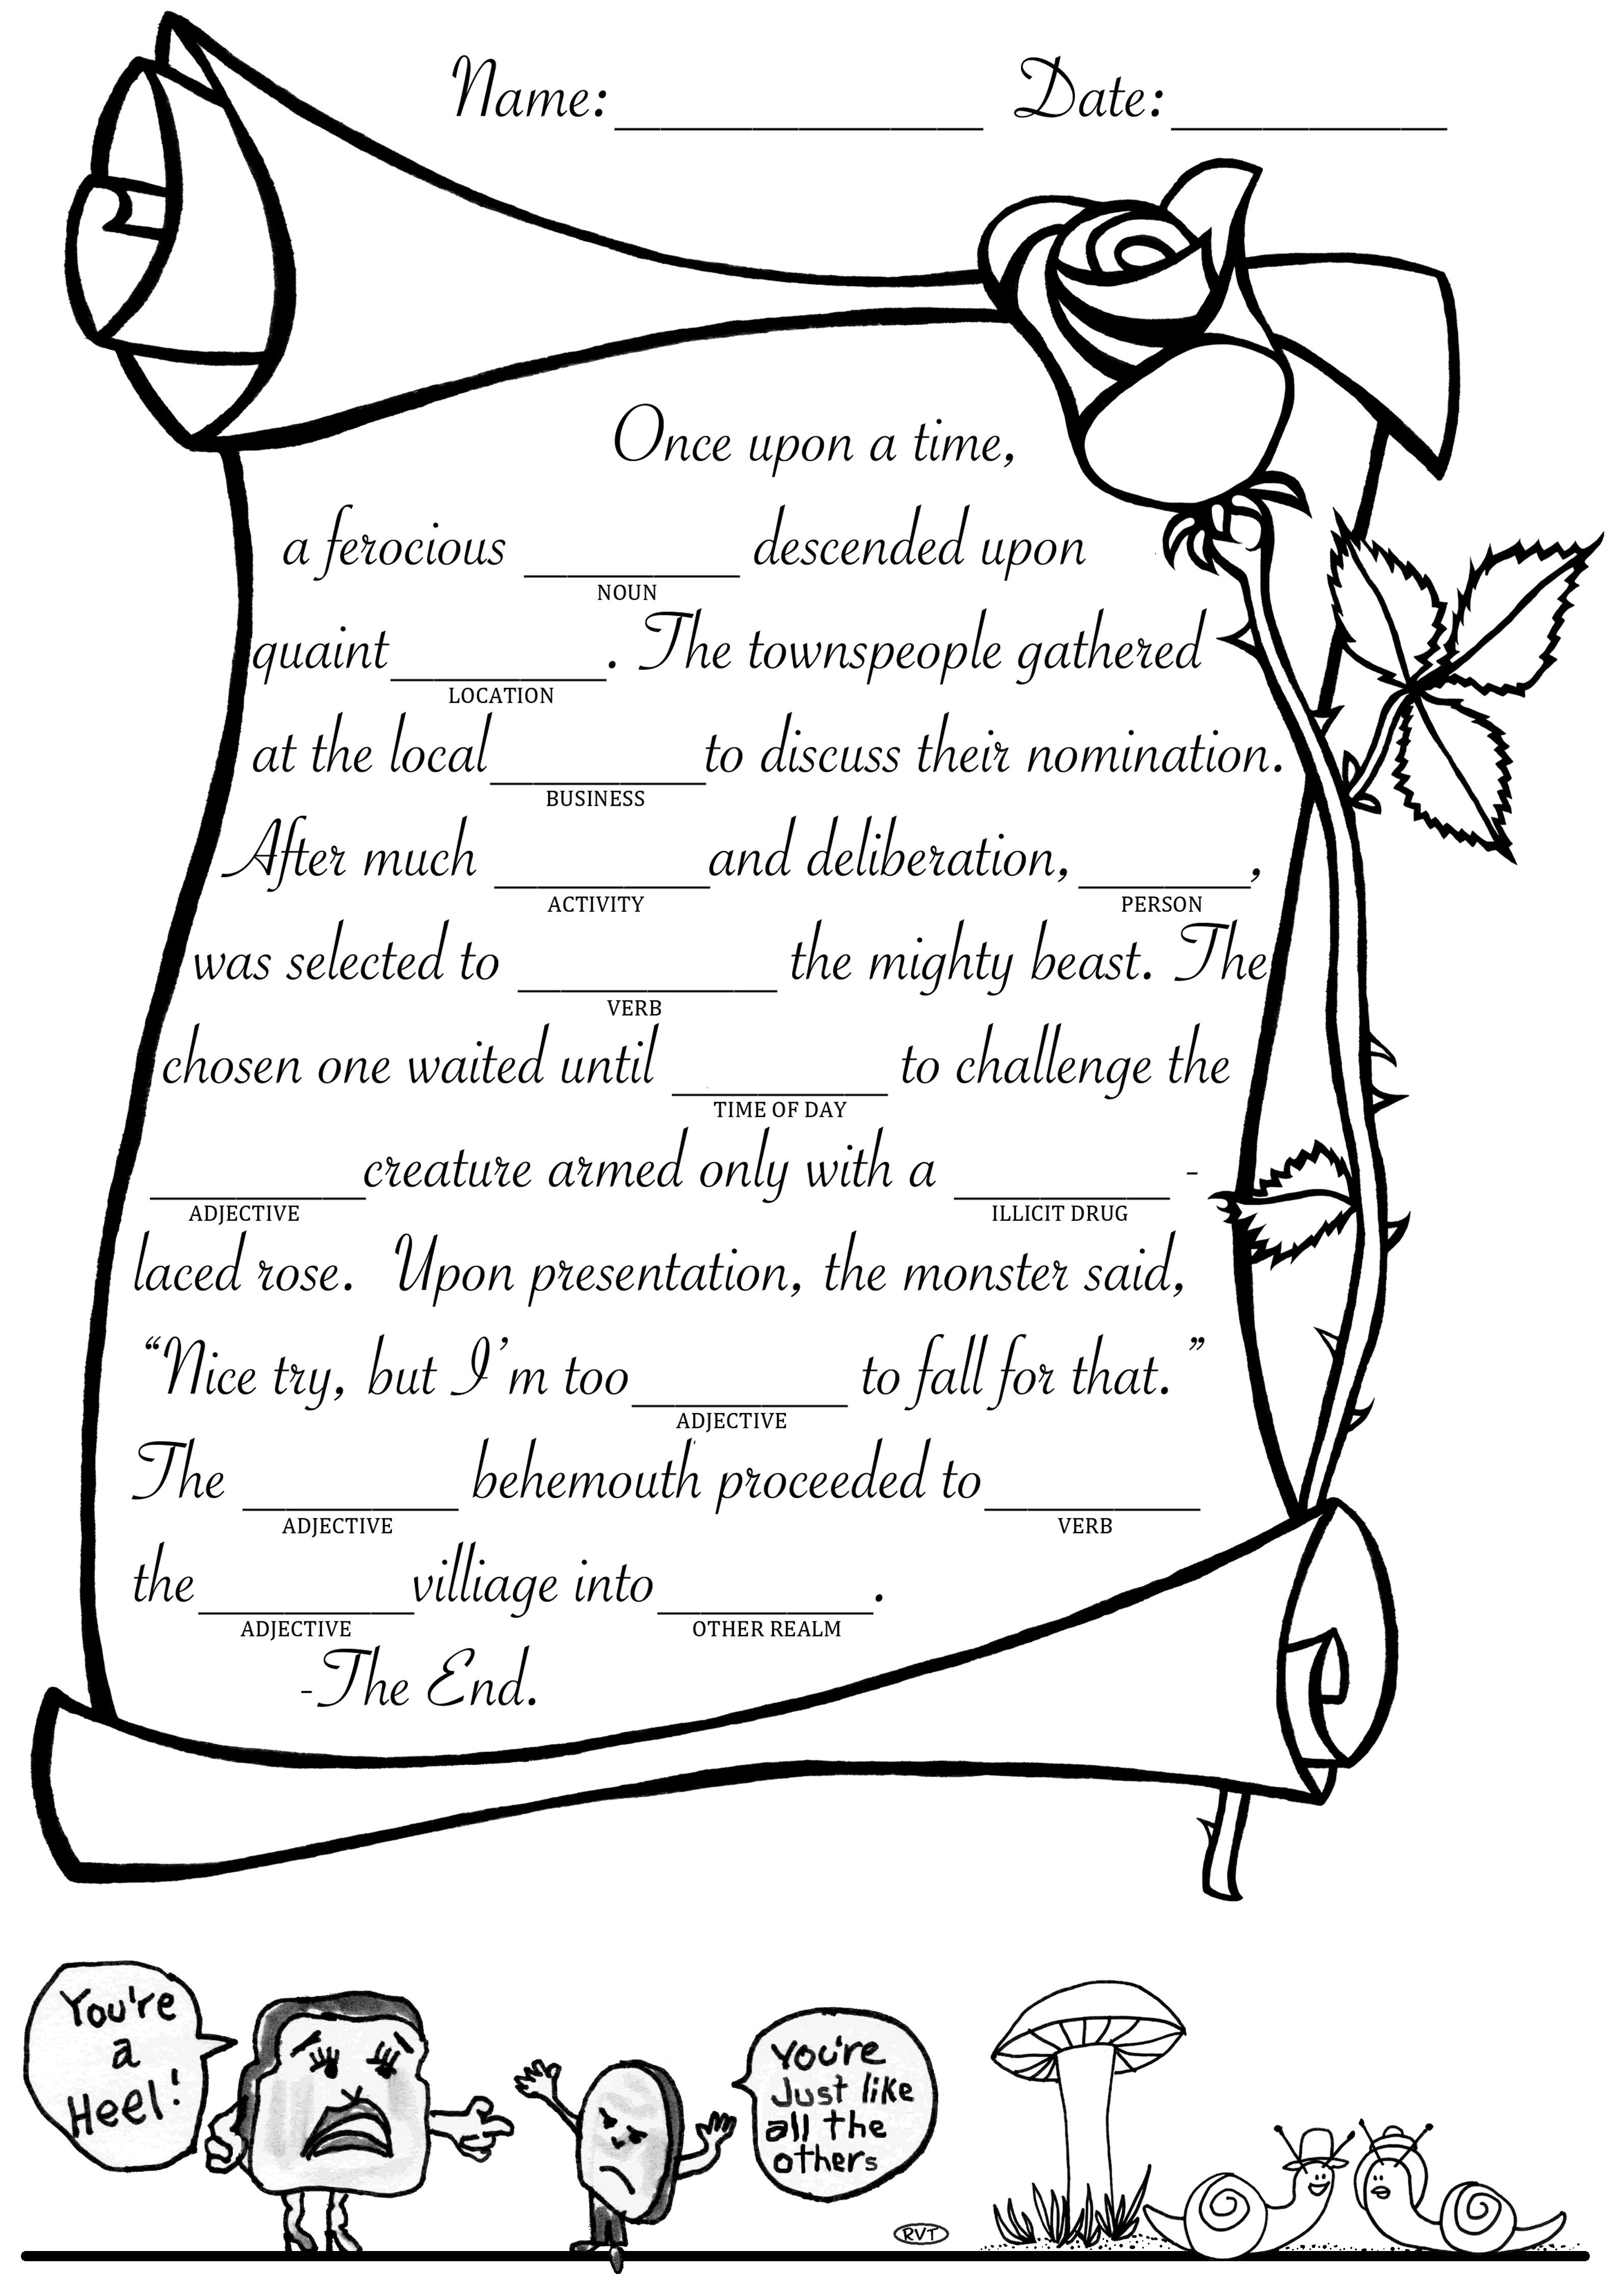 Name: ____________ Date: _________
Once upon a time,
a ferocious _______ descended upon
NOUN
quaint _______. The townspeople gathered
LOCATION
at the local _______ to discuss their nomination.
BUSINESS
After much _______ and deliberation, ______,
ACTIVITY PERSON
was selected to ________ the mighty beast. The
VERB
chosen one waited until _______ to challenge the
TIME OF DAY
_______ creature armed only with a _______ -
ADJECTIVE ILLICIT DRUG
laced rose. Upon presentation, the monster said,
“Nice try, but I’m too _______ to fall for that.”
ADJECTIVE
The _______ behemouth proceeded to _______
ADJECTIVE VERB
the _______ villiage into _______.
ADJECTIVE OTHER REALM
-The End.
You're
a
Heel!
You're
Just like
all the
others
RVT